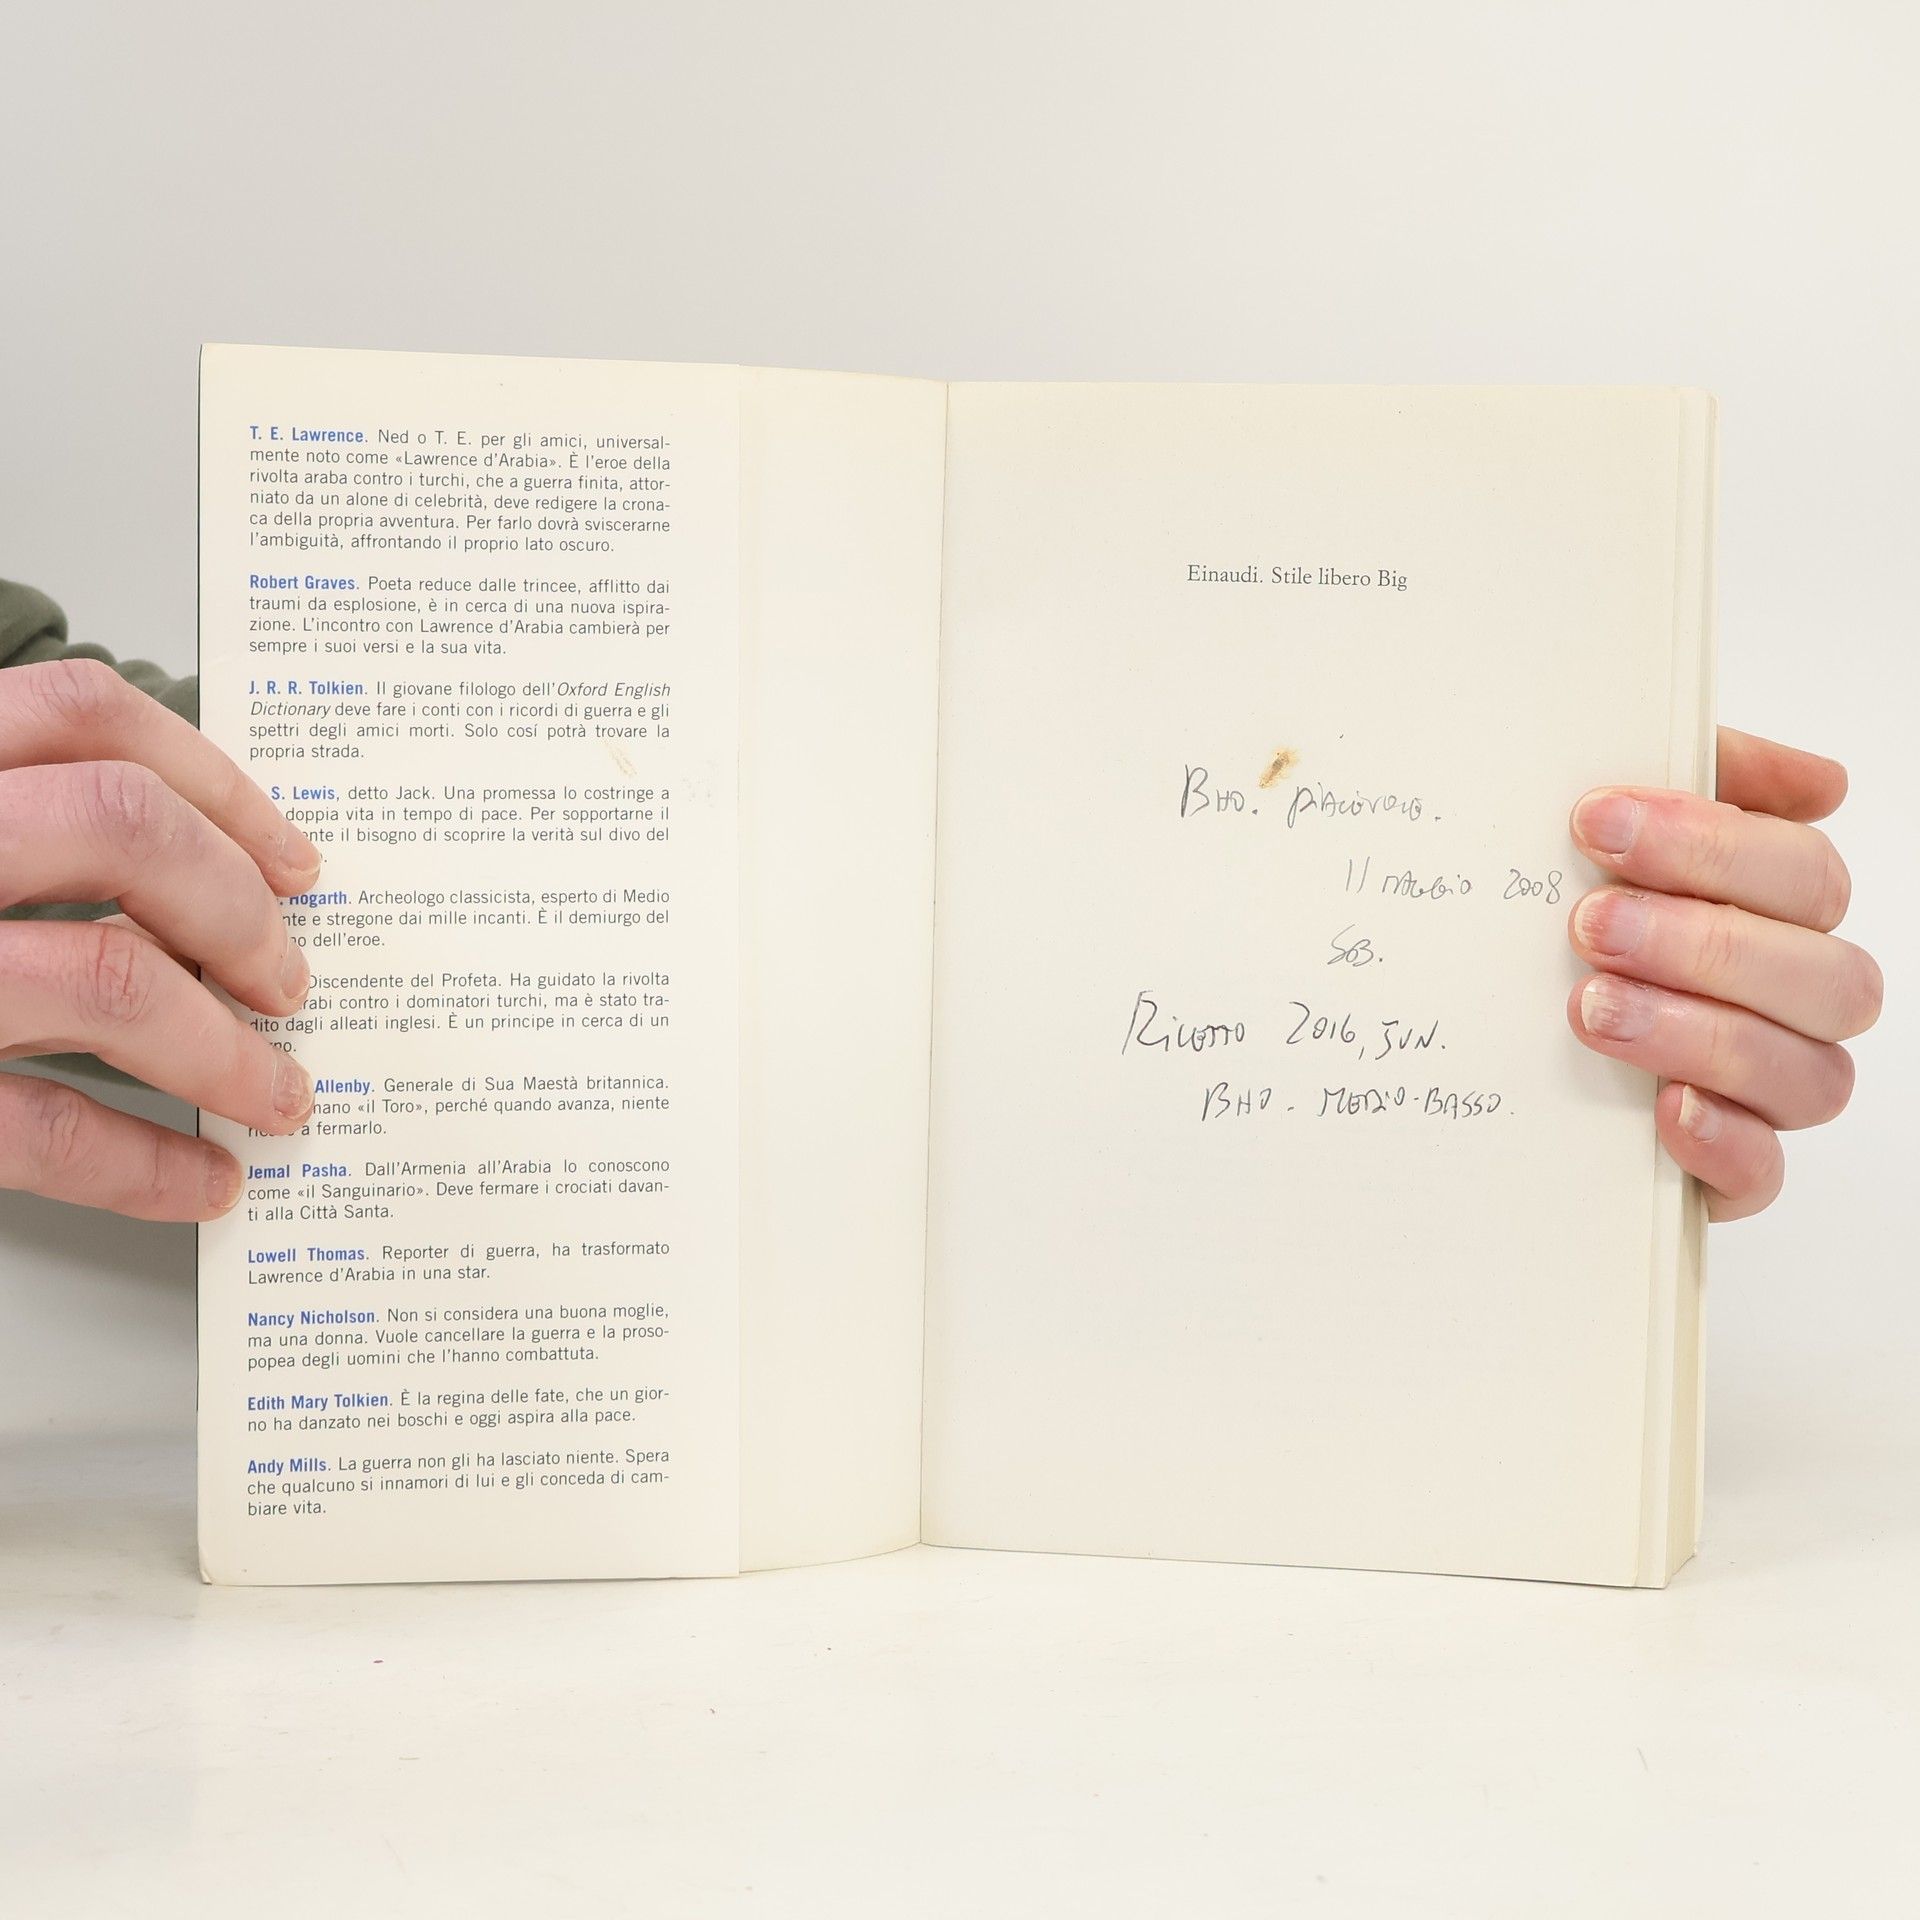 T. E. Lawrence. Ned o T. E. per gli amici, universal-
mente noto come «Lawrence d'Arabia». È l'eroe della
rivolta araba contro i turchi, che a guerra finita, attor-
niato da un alone di celebrità, deve redigere la crona-
ca della propria avventura. Per farlo dovrà sviscerarne
l'ambiguità, affrontando il proprio lato oscuro.
Robert Graves. Poeta reduce dalle trincee, afflitto dai
traumi da esplosione, è in cerca di una nuova ispira-
zione. L'incontro con Lawrence d'Arabia cambierà per
sempre i suoi versi e la sua vita.
J. R. R. Tolkien. Il giovane filologo dell'Oxford English
Dictionary deve fare i conti con i ricordi di guerra e gli
spettri degli amici morti. Solo cosí potrà trovare la
propria strada.
S. Lewis, detto Jack. Una promessa lo costringe a
doppia vita in tempo di pace. Per sopportarne il
il bisogno di scoprire la verità sul divo del
Hogarth. Archeologo classicista, esperto di Medio
e stregone dai mille incanti. È il demiurgo del
dell'eroe.
Discendente del Profeta. Ha guidato la rivolta
contro i dominatori turchi, ma è stato tra-
dito dagli alleati inglesi. È un principe in cerca di un
Allenby. Generale di Sua Maestà britannica.
«il Toro», perché quando avanza, niente
a fermarlo.
Jemal Pasha. Dall'Armenia all'Arabia lo conoscono
come «il Sanguinario». Deve fermare i crociati davan-
ti alla Città Santa.
Lowell Thomas. Reporter di guerra, ha trasformato
Lawrence d'Arabia in una star.
Nancy Nicholson. Non si considera una buona moglie,
ma una donna. Vuole cancellare la guerra e la proso-
popea degli uomini che l'hanno combattuta.
Edith Mary Tolkien. È la regina delle fate, che un gior-
no ha danzato nei boschi e oggi aspira alla pace.
Andy Mills. La guerra non gli ha lasciato niente. Spera
che qualcuno si innamori di lui e gli conceda di cam-
biare vita.
Einaudi. Stile libero Big
BHO. PIACEVOLE.
11 MAGGIO 2008
RILETTO 2016, JUN.
BHO. MEDIO-BASSO.